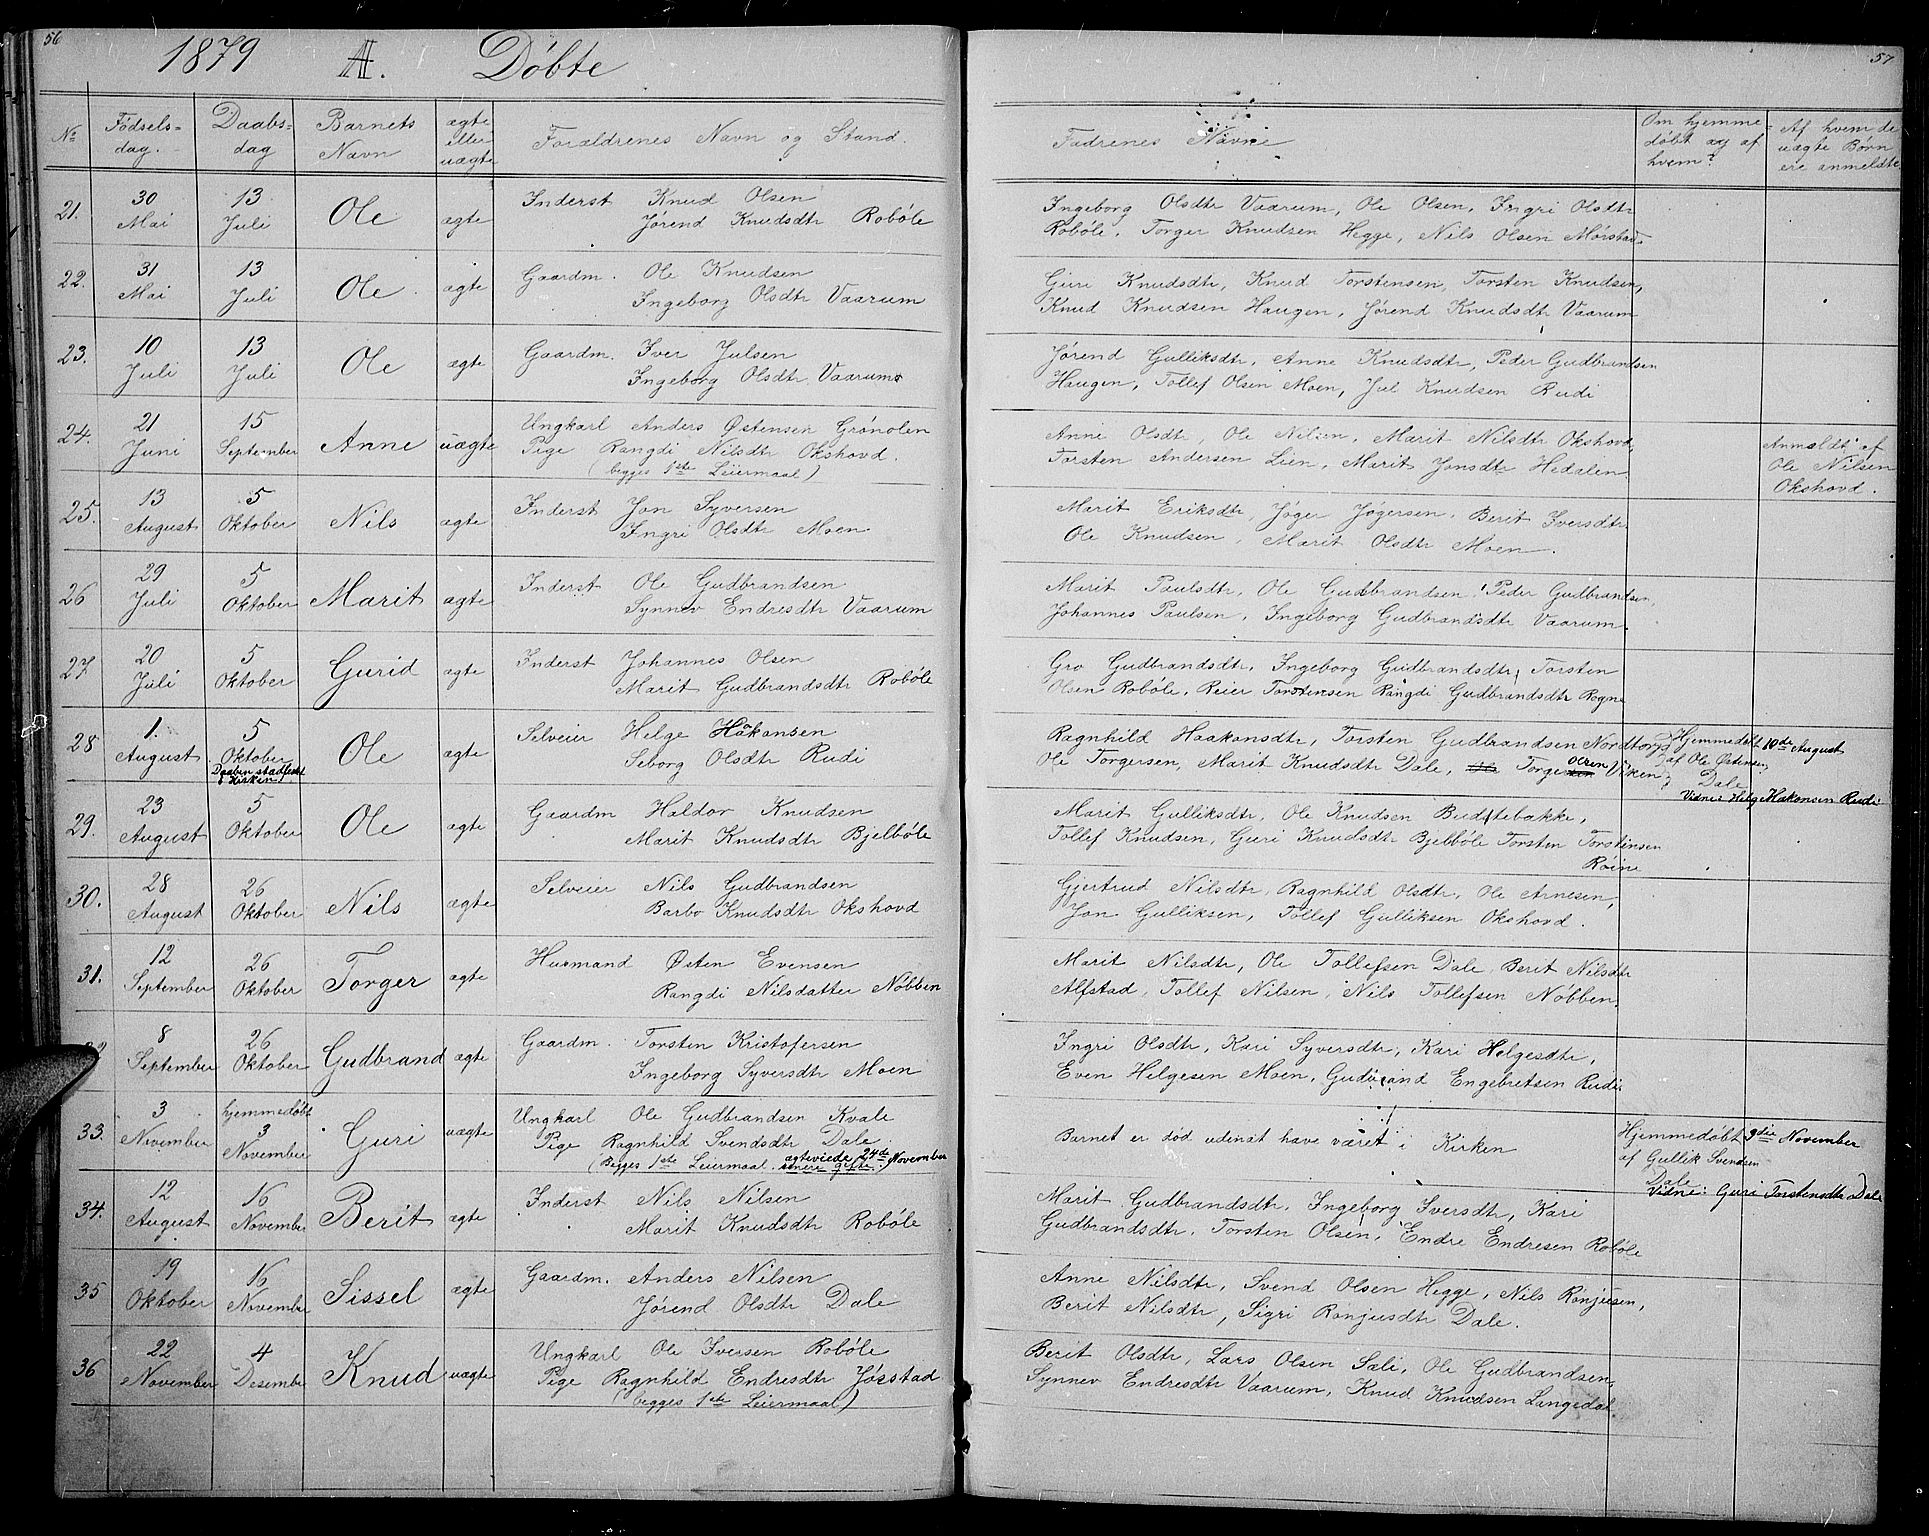 56
1879 A. Døbte
No Fødsels- Daabs- Barnets ægte Forældrenes Navn og Stand.
dag. dag Navn eller
uægte
21. 30 13 Ole ægte Inderst Knud Olsen
Mai Juli Jørend Knudsdtr Robøle
22. 31 13 Ole ægte Gaardm. Ole Knudsen
Mai Juli Ingeborg Olsdtr Vaarum
23. 10 13 Ole ægte Gaardm. Iver Julsen
Juli Juli Ingeborg Olsdtr Vaarum
24. 21 15 Anne uægte Ungkarl Anders Østensen Grønolen
Juni September Pige Rangdi Nilsdtr Okshovd.
(begges 1ste Leiermaal)
25. 13 5 Nils ægte Inderst Jon Syversen
August Oktober Ingri Olsdtr Moen
26 29 5 Marit ægte Inderst Ole Gudbrandsen
Juli Oktober Synnev Endresdtr Vaarum
27 20 5 Gurid ægte Inderst Johannes Olsen
Juli Oktober Marit Gudbrandsdtr Robøle
28 1. 5 Ole ægte Selveier Helge Håkonsen
August Oktober Seborg Olsdtr Rudi
Daaben stadfæstet
i Kirken
29. 23 5 Ole ægte Gaardm Haldor Knudsen
August Oktober Marit Knudsdtr Bjelbøle
30. 28 26 Nils ægte Selveier Nils Gudbrandsen
August Oktober Barbo Knudsdtr Okshovd
31. 12 26 Torger ægte Husmand Østen Evensen
September Oktober Rangdi Nilsdatter Nøbben
8 26 Gudbrand ægte Gaardm. Torsten Kristofersen
September Oktober Ingeborg Syversdtr Moen
33. 3 hjemmedøbt Guri uægte Ungkarl Ole Gudbrandsen Kvale
November 3 Pige Ragnhild Svendsdtr Dale
November (Begges 1ste Leiermaal. senere gifte. ægteviede 24de November
34. 12 16 Berit ægte Inderst Nils Nilsen
August November Marit Knudsdtr Robøle
35 19 16 Sissel ægte Gaardm. Anders Nilsen
Oktober November Jørend Olsdtr Dale
36 22 4 Knud uægte Ungkarl Ole Iversen Robøle
November Desember Pige Ragnhild Endresdtr Jørstad
(begges 1ste Leiermaal)
57
Fadrenes Navne
Om hjemme-
døbt og af
hvem?
Af hvem de
uægte Børn
ere anmeldte
Ingeborg Olsdtr Vaarum, Ole Olsen, Ingri Olsdtr
Robøle. Torger Knudsen Hegge, Nils Olsen Mørstad.
Guri Knudsdtr, Knud Torstensen, Torsten Knudsen,
Knud Knudsen Haugen, Jørend Knudsdtr Vaarum
Jørend Gulliksdtr, Anne Knudsdtr, Peder Gudbrandsen
Haugen, Tollef Olsen Moen, Jul Knudsen Rudi
Anne Olsdtr, Ole Nilsen, Marit Nilsdtr Okshovd,
Torsten Andersen Lien, Marit Jonsdtr Hedalen
Anmeldt af
Ole Nilsen
Okshovd.
Marit Eriksdtr, Jøger Jøgersen, Berit Iversdtr
Ole Knudsen, Marit Olsdtr Moen.
Marit Paulsdtr, Ole Gudbrandsen, Peder Gudbrandsen,
Johannes Paulsen, Ingeborg Gudbrandsdtr Vaarum.
Gro Gudbrandsdtr, Ingeborg Gudbrandsdtr, Torsten
Olsen Robøle, Reier Torstensen Rangdi Gudbrandsdtr Rogne
Ragnhild Haakonsdtr, Torsten Gudbrandsen Nordtorp
Ole Torgersen, Marit Knudsdtr Dale, Ole Torgersen Olsen Viken
Hjemmedøbt 10de August
af Ole Østensen
Dale
Vidne: Helge Haakonsen Rudi
Marit Gulliksdtr, Ole Knudsen Budttebakke,
Tollef Knudsen, Guri Knudsdtr Bjelbøle Torsten Torstensen
Røine
Gjertrud Nilsdtr, Ragnhild Olsdtr, Ole Arnesen,
Jon Gulliksen, Tollef Gulliksen Okshovd.
Marit Nilsdtr, Ole Tollefsen Dale, Berit Nilsdtr
Alfstad, Tollef Nilsen, Nils Tollefsen Nøbben.
Ingri Olsdtr, Kari Syversdtr, Kari Helgesdtr,
Even Helgesen Moen, Gudbrand Engebretsen Rudi.
Barnet er død udenat have været i Kirken
Hjemmedøbt 3die November
af Gullik Svendsen
Dale
Vidne: Guri Torstensdtr Dale
Marit Gudbrandsdtr, Ingeborg Iversdtr, Kari
Gudbrandsdtr, Torsten Olsen, Endre Endresen Robøle
Anne Nilsdtr, Svend Olsen Hegge, Nils Rønjusen,
Berit Nilsdtr, Sigri Rønjusdtr Dale.
Berit Olsdtr, Lars Olsen Sæli, Ole Gudbrandsen,
Synnev Endresdtr Vaarum, Knud Knudsen Langedal.